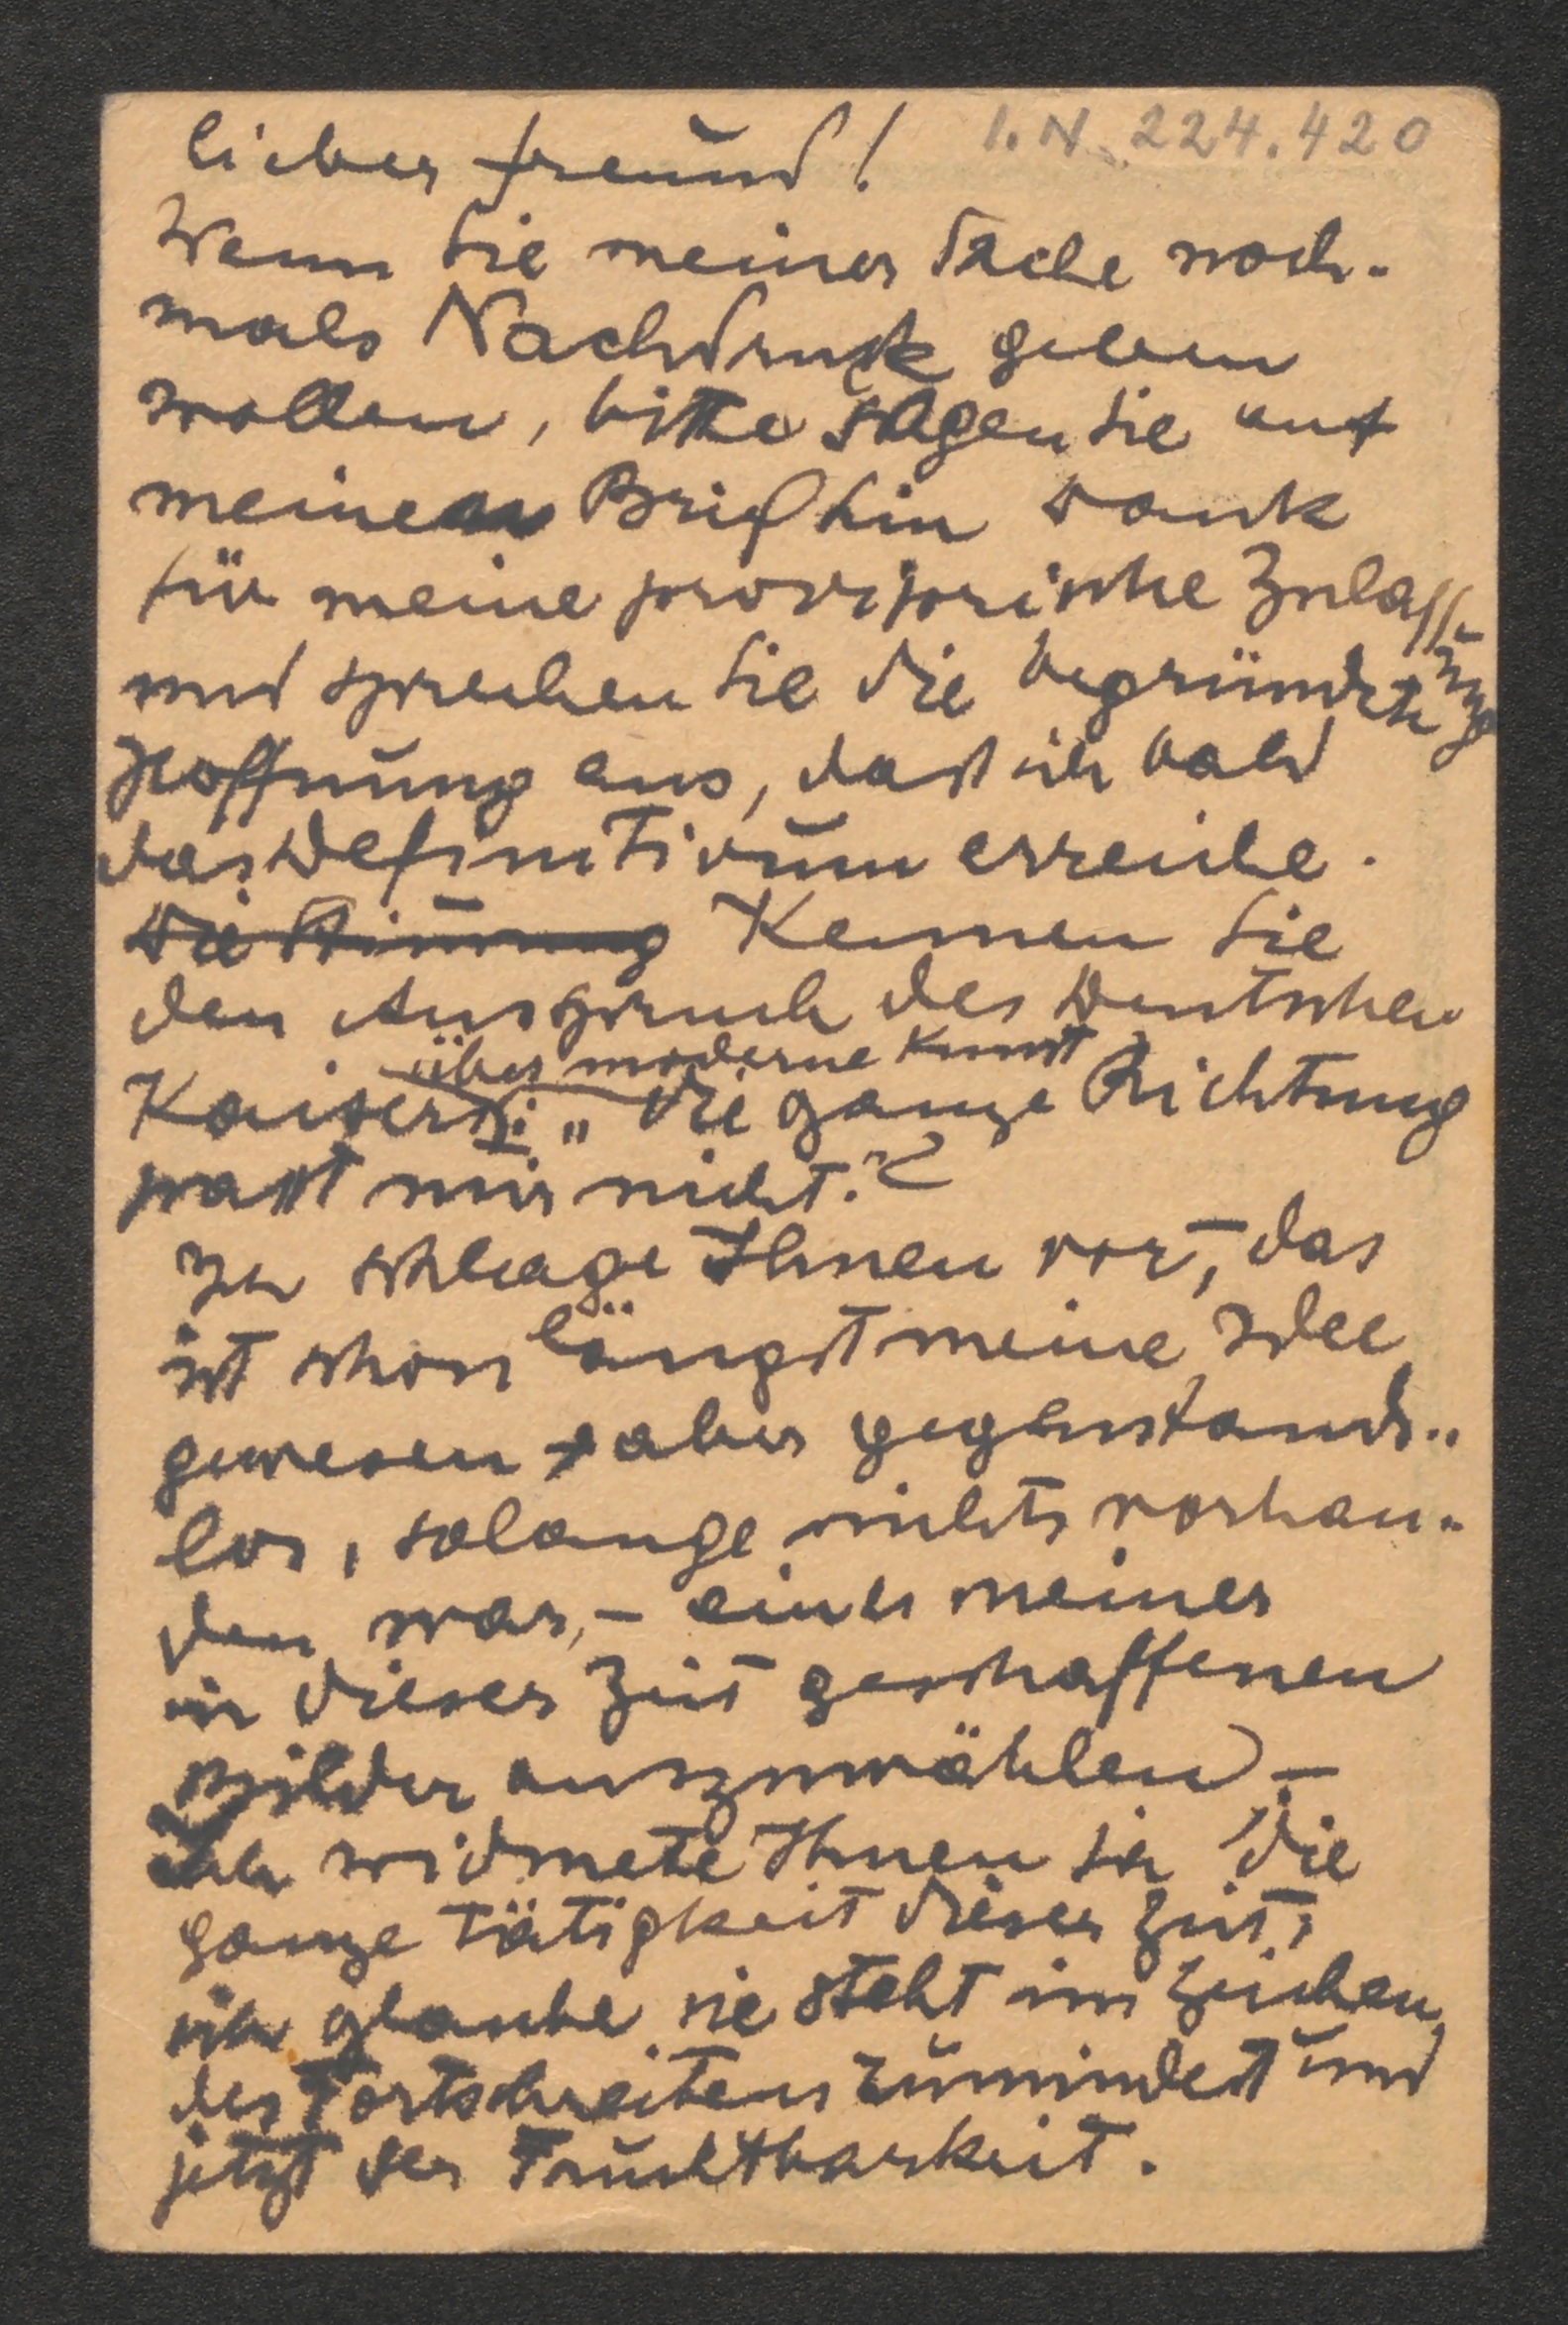 lieber Freund! I.N. 224.420
Wenn Sie meiner Sache noch-
mals Nachdruck geben
wollen, bitte sagen Sie auf
meinen Brief hin Dank
für meine provisorische Zulassung
und sprechen Sie die begründete
Hoffnung aus, dass ich bald
das Definitivum erreiche.
Die Stimmung Kennen Sie
den Ausspruch des Deutschen
über moderne Kunst
Kaisers: „die ganze Richtung
passt mir nicht."?
Ich schlage Ihnen vor, das
ist schon längst meine Idee
gewesen, aber gegenstands-
los, solange nichts vorhan-
den war, – eines meiner
in dieser Zeit geschaffenen
Bilder auszuwählen –
Ich widmete Ihnen ja die
ganze Tätigkeit dieser Zeit;
ich glaube sie steht im Zeichen
des Fortschreitens zumindest und
jetzt der Fruchtbarkeit.